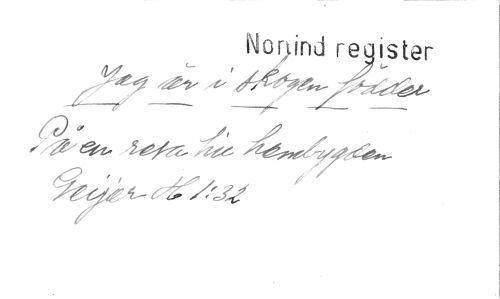 Nonind register
Jag är i skogen födder
På en resa till hembygden
Geijer H 1:32